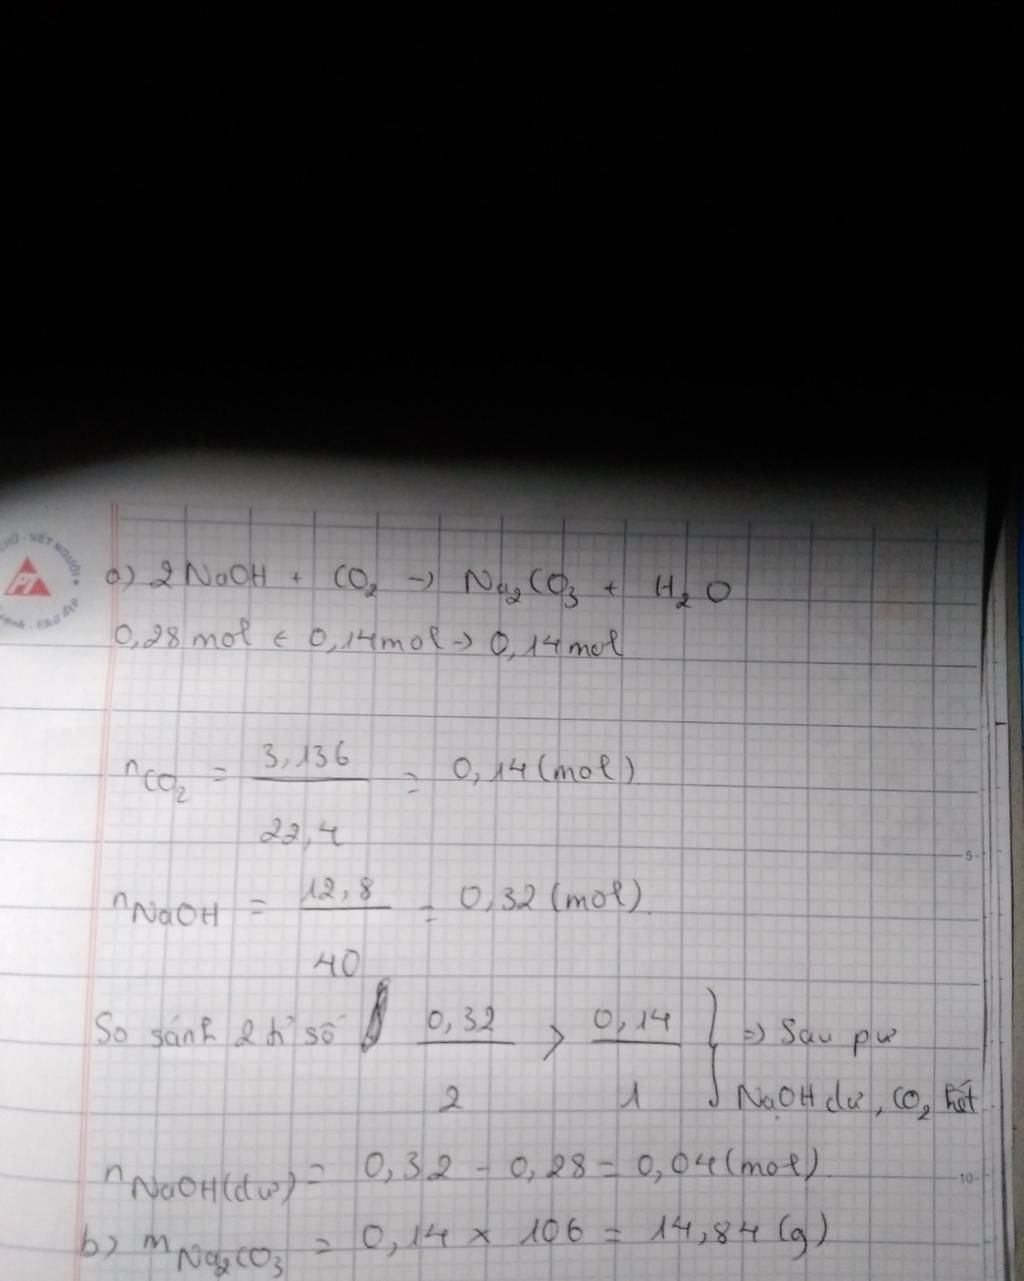 CHỮ - NẾT NGƯỜI
PT
a) 2NaOH + CO₂ → Na₂CO₃ + H₂O
0,28 mol ← 0,14 mol → 0,14 mol
nCO₂ = 3,136 / 22,4 = 0,14 (mol)
5
nNaOH = 12,8 / 40 = 0,32 (mol)
So sánh 2 tỉ số 0,32 / 2 > 0,14 / 1 } => Sau pư
NaOH dư, CO₂ hết
nNaOH(dư) = 0,32 - 0,28 = 0,04 (mol)
10
b) mNa₂CO₃ = 0,14 x 106 = 14,84 (g)